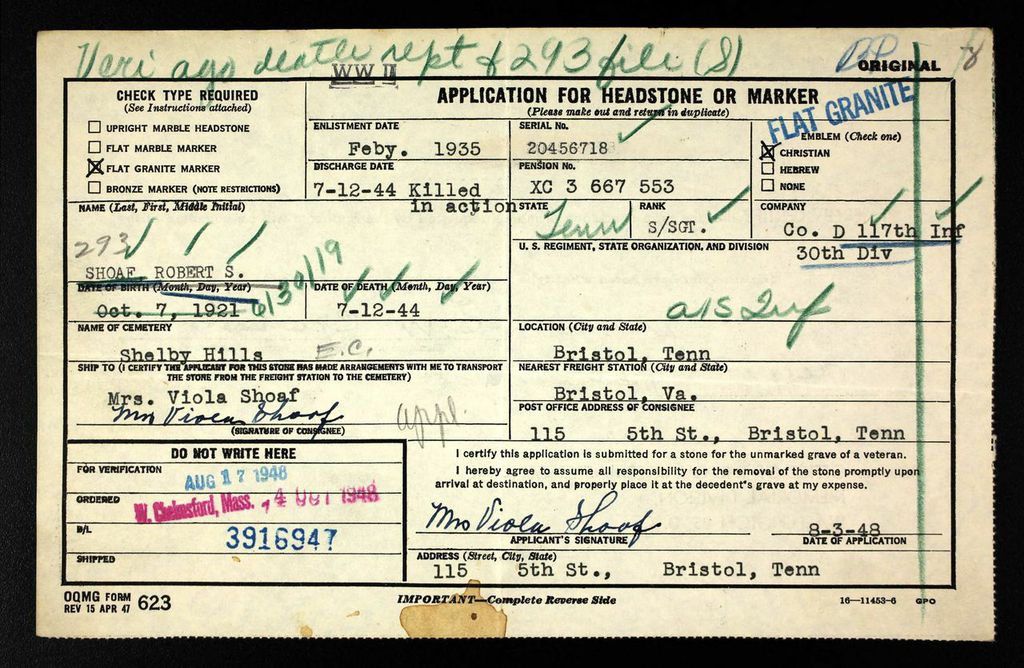 Veri ago death rept & 293 file (S)
WW II
ORIGINAL
CHECK TYPE REQUIRED
(See Instructions attached)
UPRIGHT MARBLE HEADSTONE
FLAT MARBLE MARKER
FLAT GRANITE MARKER
BRONZE MARKER (NOTE RESTRICTIONS)
APPLICATION FOR HEADSTONE OR MARKER
(Please make out and return in duplicate)
ENLISTMENT DATE
Feby. 1935
DISCHARGE DATE
7-12-44 Killed
in action
SERIAL No.
20456718
PENSION No.
XC 3 667 553
FLAT GRANITE
EMBLEM (Check one)
CHRISTIAN
HEBREW
NONE
NAME (Last, First, Middle Initial)
293
SHOAF, ROBERT S.
STATE
Tenn
RANK
S/SGT.
COMPANY
Co. D 117th Inf
30th Div
U. S. REGIMENT, STATE ORGANIZATION, AND DIVISION
DATE OF BIRTH (Month, Day, Year)
Oct. 7, 1921 6/30/19
DATE OF DEATH (Month, Day, Year)
7-12-44
NAME OF CEMETERY
Shelby Hills E.C.
LOCATION (City and State)
Bristol, Tenn
SHIP TO (I CERTIFY THE APPLICANT FOR THIS STONE HAS MADE ARRANGEMENTS WITH ME TO TRANSPORT
THE STONE FROM THE FREIGHT STATION TO THE CEMETERY)
Mrs. Viola Shoaf
Mrs Viola Shoaf
(SIGNATURE OF CONSIGNEE)
appl.
NEAREST FREIGHT STATION (City and State)
Bristol, Va.
POST OFFICE ADDRESS OF CONSIGNEE
115 5th St., Bristol, Tenn
DO NOT WRITE HERE
FOR VERIFICATION
AUG 17 1948
ORDERED
W. Chelmsford, Mass. 4 OCT 1948
B/L
3916947
SHIPPED
I certify this application is submitted for a stone for the unmarked grave of a veteran.
I hereby agree to assume all responsibility for the removal of the stone promptly upon
arrival at destination, and properly place it at the decedent's grave at my expense.
Mrs Viola Shoaf
APPLICANT'S SIGNATURE
8-3-48
DATE OF APPLICATION
ADDRESS (Street, City, State)
115 5th St., Bristol, Tenn
OQMG FORM
REV 15 APR 47 623
IMPORTANT—Complete Reverse Side
16—11453-6 GPO